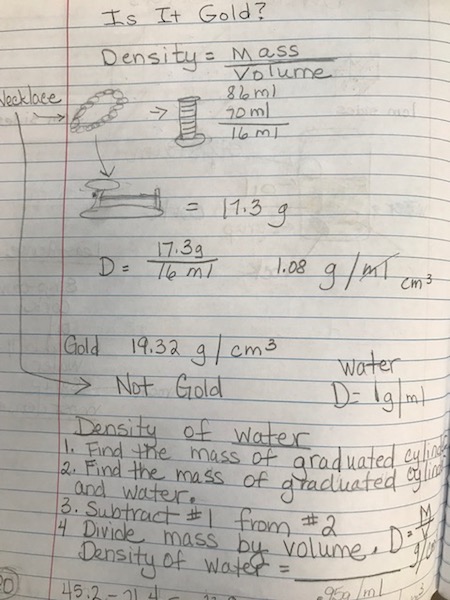 Is It Gold?
Density = Mass
Volume
Necklace
86 ml
70 ml
16 ml
= 17.3 g
D = 17.3g
16 ml
1.08 g/ml cm³
Gold 19.32 g/cm³
Not Gold
water
D= 1g/ml
Density of water
1. Find the mass of graduated cylinde
2. Find the mass of graduated cylin
and water.
3. Subtract #1 from #2
4 Divide mass by volume. D = M
V
Density of water = g/
.95g/ml
45.2 -